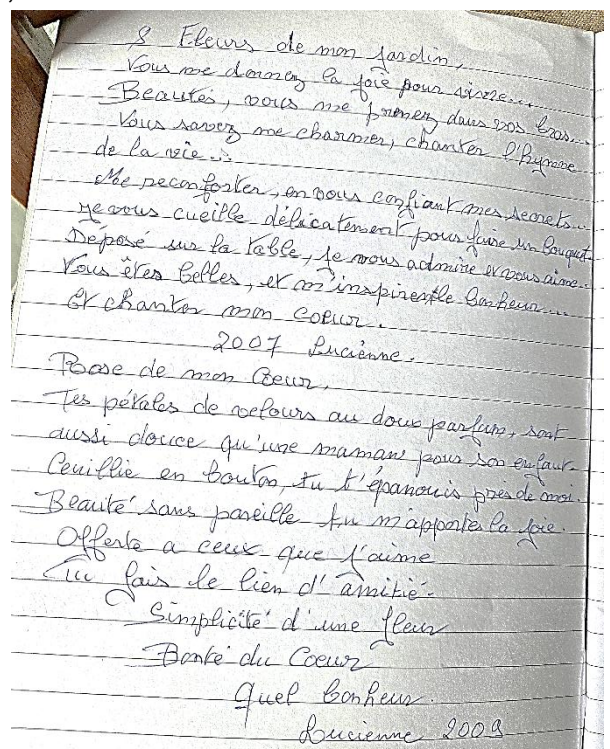 8 Fleurs de mon Jardin,
Vous me donnez la joie pour vivre...
Beautés, vous me prenez dans vos bras...
Vous savez me charmer, chanter l'hymne
de la vie...
Me reconforter, en vous confiant mes secrets...
Je vous cueille délicatement pour faire un bouquet.
Déposé sur la table, je vous admire et vous aime...
Vous êtes belles, et m'inspirent le bonheur...
Et chanter mon coeur.
2007 Lucienne.
Rose de mon Coeur,
Tes pétales de velours au doux parfum, sont
aussi douce qu'une maman pour son enfant.
Ceuillie en bouton, tu t'épanouis près de moi.
Beauté sans pareille tu m'apportes la joie.
Offerte a ceux que j'aime
Tu fais le lien d'amitié.
Simplicité d'une fleur
Bonté du Coeur
Quel bonheur.
Lucienne 2009